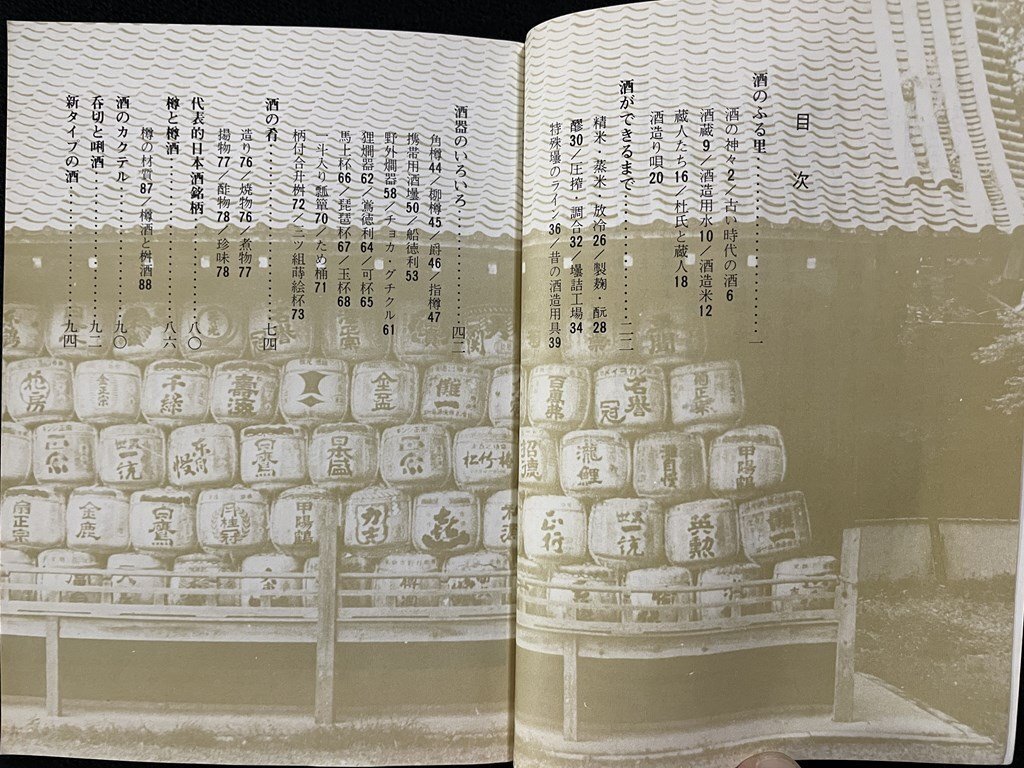 目次
酒のふる里…………一
酒の神々2／古い時代の酒6
酒蔵9／酒造用水10／酒造米12
蔵人たち16／杜氏と蔵人18
酒造り唄20
酒ができるまで…………二二
精米・蒸米・放冷26／製麹・酛28
醪30／圧搾・調合32／壜詰工場34
特殊壜のライン36／昔の酒造用具39
酒器のいろいろ…………四二
角樽44／柳樽45／爵46／指樽47
携帯用酒壜50／船徳利53
野外燗器58／チョカ グチクル61
狸燗器62／鴬徳利64／可杯65
馬上杯66／琵琶杯67／玉杯68
一斗入り瓢箪70／ため桶71
柄付合升桝72／三ツ組蒔絵杯73
酒の肴…………七四
造り76／焼物76／煮物77
揚物77／酢物78／珍味78
代表的日本酒銘柄…………八〇
樽と樽酒…………八六
樽の材質87／樽酒と桝酒88
酒のカクテル…………九〇
呑切と唎酒…………九二
新タイプの酒…………九四
扇正宗
名誉冠
百萬弗
灘一
金盃
壽海
千歳
金正宗
花房
甲陽鶴
灘自慢
瀧鯉
招德
松竹梅
正宗
日本盛
白鷹
世界一統
兵勲
世界一統
正行
甲陽鶴
月桂冠
白鷹
金鹿
扇正宗